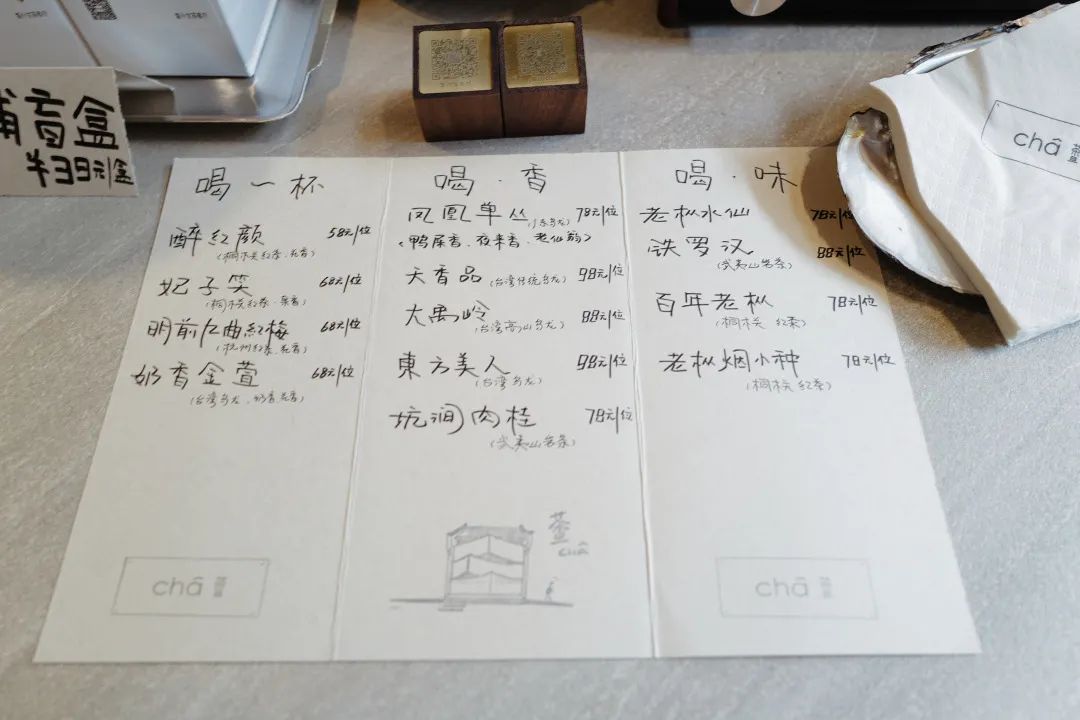 盲盒
¥39元/盒
chá
喝一杯
醉红颜 58元/位
(桐木关红茶·花香)
妃子笑 68元/位
(桐木关红茶·果香)
明前九曲红梅 68元/位
(杭州红茶·花香)
奶香金萱 68元/位
(台湾乌龙·奶香花香)
喝·香
凤凰单丛 (广东乌龙) 78元/位
(鸭屎香、夜来香、老仙翁)
天香品 (台湾传统乌龙) 98元/位
大禹岭 88元/位
(台湾高山乌龙)
東方美人 98元/位
(台湾乌龙)
坑涧肉桂 78元/位
(武夷山岩茶)
喝·味
老枞水仙 78元/位
铁罗汉 88元/位
(武夷山岩茶)
百年老枞 78元/位
(桐木关 红茶)
老枞烟小种 78元/位
(桐木关 红茶)
chá
chá
chá